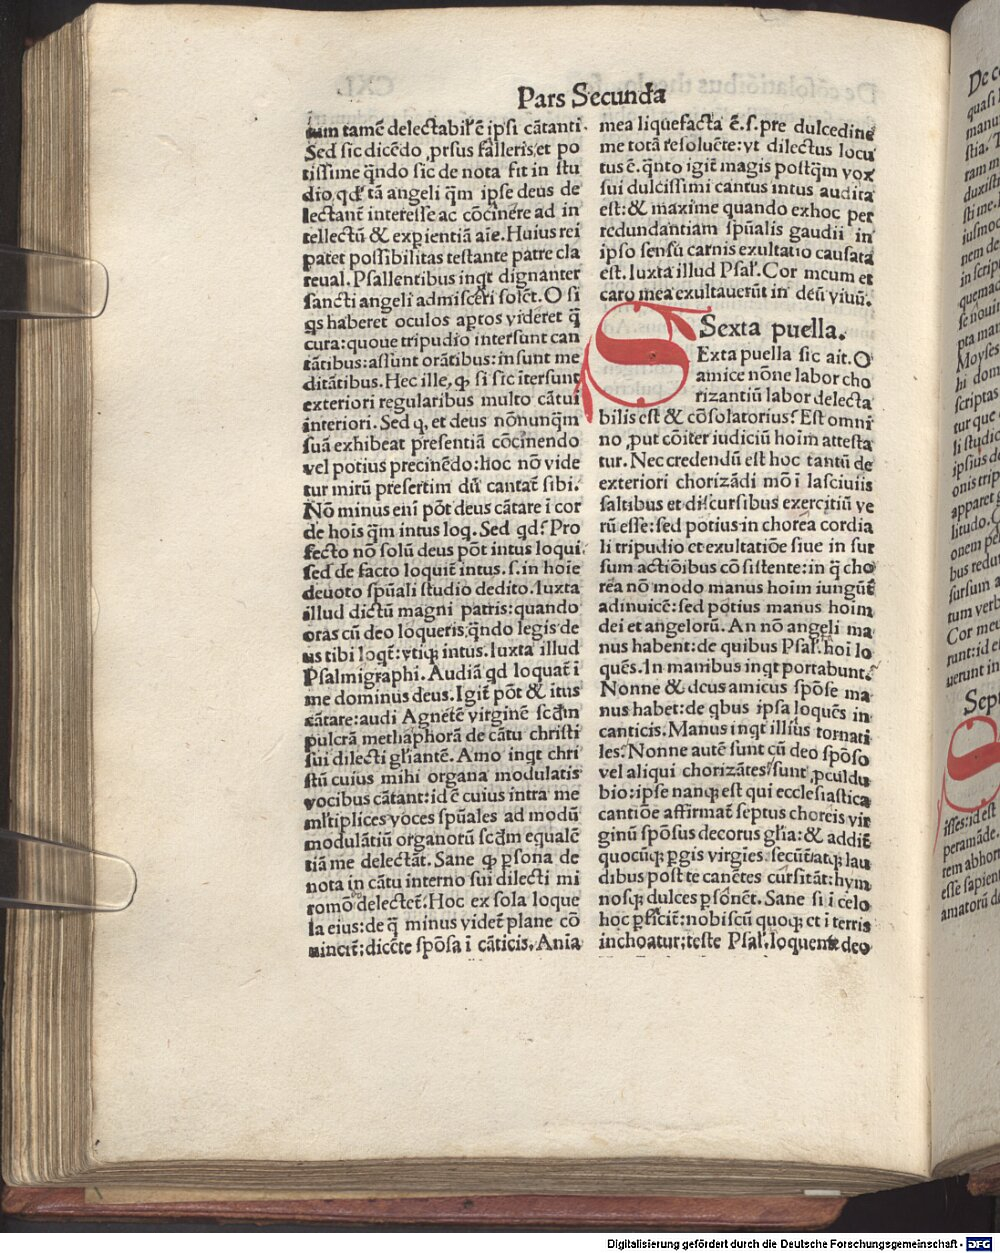 Pars Secunda
tum tamē delectabil'ē ipsi cātanti.
Sed sic dicēdo ꝓsus falleris, et po
tissime qn̄do sic de nota fit in stu
dio qd' tā angeli q̄m ipse deus de
lectant̄ interesse ac cōcinere ad in
tellectū & expientiā aīe. Huius rei
patet possibilitas testante patre cla
reual. Psallentibus inqt dignanter
sancti angeli admisceri solēt. O si
qs haberet oculos aptos videret q̄
cura: quoue tripudio intersunt can
tātibus: assūnt orātibus: insunt me
ditātibus. Hec ille, ꝙ si sic iter̄sunt
exteriori regularibus multo cātui
interiori. Sed q, et deus nōnunq̄m
suā exhibeat presentiā cōcinendo
vel potius precinēdo: hoc nō vide
tur mirū presertim dū cantat̄ sibi.
Nō minus eni pōt deus cātare i cor
de hois q̄m intus loq. Sed qd? Pro
fecto nō solū deus pōt intus loqui
sed de facto loquit̄ intus. s. in hoīe
deuoto spūali studio dedito. Iuxta
illud dictū magni patris: quando
oras cū deo loqueris, qn̄do legis de
us tibi loqt̄: vtiqꝫ intus. Iuxta illud
Psalmigraphi. Audiā qd loquat̄ i
me dominus deus. Igit̄ pōt & ītus
cātare: audi Agnetē virginē scdm̄
pulcrā methaphorā de cātu christi
sui dilecti gliantē. Amo inqt chri
stū cuius mihi organa modulatis
vocibus cātant: id ē cuius intra me
ml'tiplices voces spūales ad modū
modulātiū organorū scdm̄ equalē
tiā me delectāt. Sane ꝙ psona de
nota in cātu interno sui dilecti mi
romō delectet̄. Hoc ex sola loque
la eius: de q̄ minus videt̄ plane cō
uincit̄: dicēte spōsa i cāticis. Ania
mea liquefacta ē. s. pre dulcedine
me totā resoluēte: vt dilectus locu
tus ē. qn̄to igit̄ magis postq̄m vox
sui dulcissimi cantus intus audita
est: & maxime quando exhoc per
redundantiam spūalis gaudii in
ipso sensū carnis exultatio causata
est. Iuxta illud Psal'. Cor meum et
caro mea exultauerūt in deū viuū.
Sexta puella.
SExta puella sic ait. O
amice nōne labor cho
rizantiū labor delecta
bilis est & cōsolatorius? Est omni
no ,put cōiter iudiciū hoim attesta
tur. Nec credendū est hoc tantū de
exteriori chorizādi mō i lasciuiis
saltibus et discursibus exercitiū ve
rū esse: sed potius in chorea cordia
li tripudio et exultatiōe siue in sur
sum actiōibus cōsistente: in q̄ cho
rea nō modo manus hoim iungūt̄
adinuicē: sed potius manus hoim
dei et angelorū. An nō angeli ma
nus habent: de quibus Psal'. hoi lo
quēs. In manibus inqt portabunt.
Nonne & deus amicus spōse ma
nus habet: de qbus ipsa loquēs in
canticis. Manus inqt illius tornati
les? Nonne autē sunt cū deo spōso
vel aliqui chorizātes? sunt ,pculdu
bio: ipse nanqꝫ est qui ecclesiastica
cantiōe affirmat̄ septus choreis vir
ginū spōsus decorus glia: & addit̄
quocūqꝫ pgis virgies secūt̄ atqꝫ lau
dibus post te canētes cursitāt: hym
nosqꝫ dulces psōnēt. Sane si i celo
hoc pficit̄: nobiscū quoqꝫ et i terris
inchoatur: teste Psal'. loquente deo